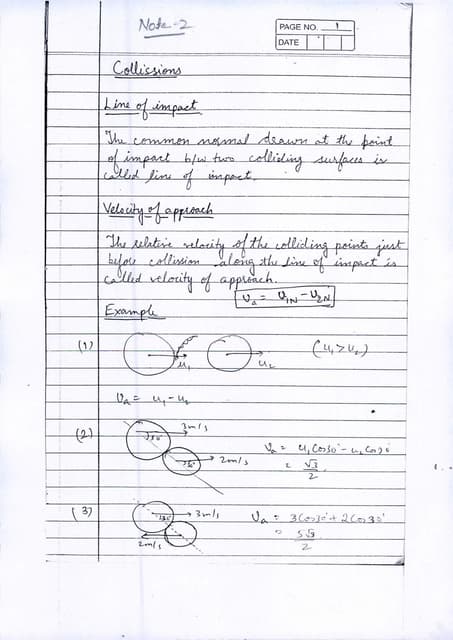 Note-2
PAGE NO. 1
DATE
Collissions
Line of impact
The common normal drawn at the point
of impact b/w two colliding surfaces is
called line of impact.
Velocity of approach
The relative velocity of the colliding points just
before collission along the line of impact is
called velocity of approach.
Va = U1N - U2N
Example
(1)
u1
u2
(u1 > u2)
Va = u1 - u2
(2)
3m/s
30°
30°
2m/s
Va = u1 Cos30° - u2 Cos30°
= √3
2
(3)
30°
3m/s
2m/s
Va = 3Cos30° + 2Cos30°
= 5√3
2